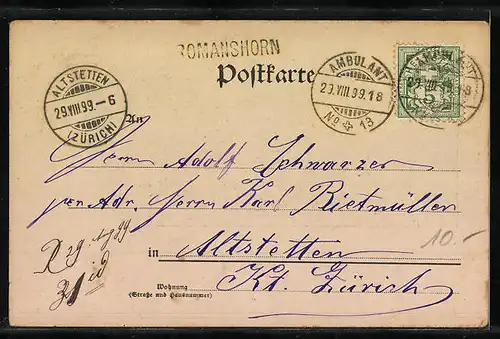 ROMANSHORN
Postkarte
ALTSTETTEN
29.VIII.99.–6
(ZÜRICH)
AMBULANT
29.VIII.99.18
No 13
AMBULANT
An
Herrn Adolf Schwarzer
per Adr. Herrn Karl Rietmüller
in Altstetten
Kt. Zürich
10.-
Wohnung
(Straße und Hausnummer)